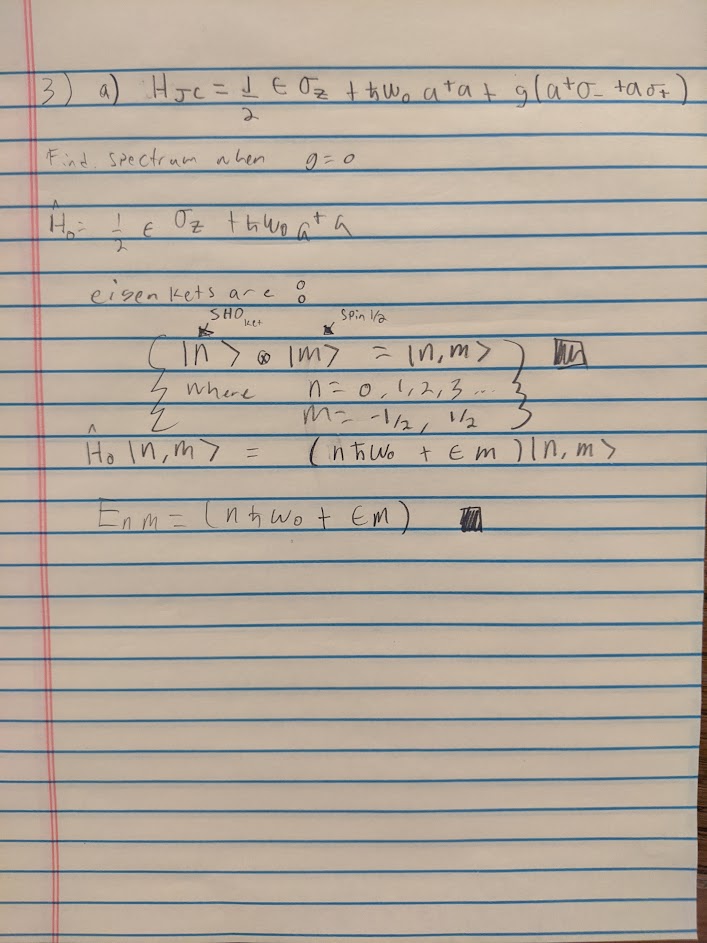 3) a) H_JC = 1/2 ϵ σ_z + ħω₀ a†a + g(a†σ₋ + aσ₊)
Find spectrum when g = 0
Ĥ₀ = 1/2 ϵ σ_z + ħω₀ a†a
eigenkets are :
SHO ket spin 1/2
{ |n> ⊗ |m> = |n,m>
where n = 0,1,2,3...
m = -1/2, 1/2 }
Ĥ₀ |n,m> = (nħω₀ + ϵm)|n,m>
E_nm = (nħω₀ + ϵm)